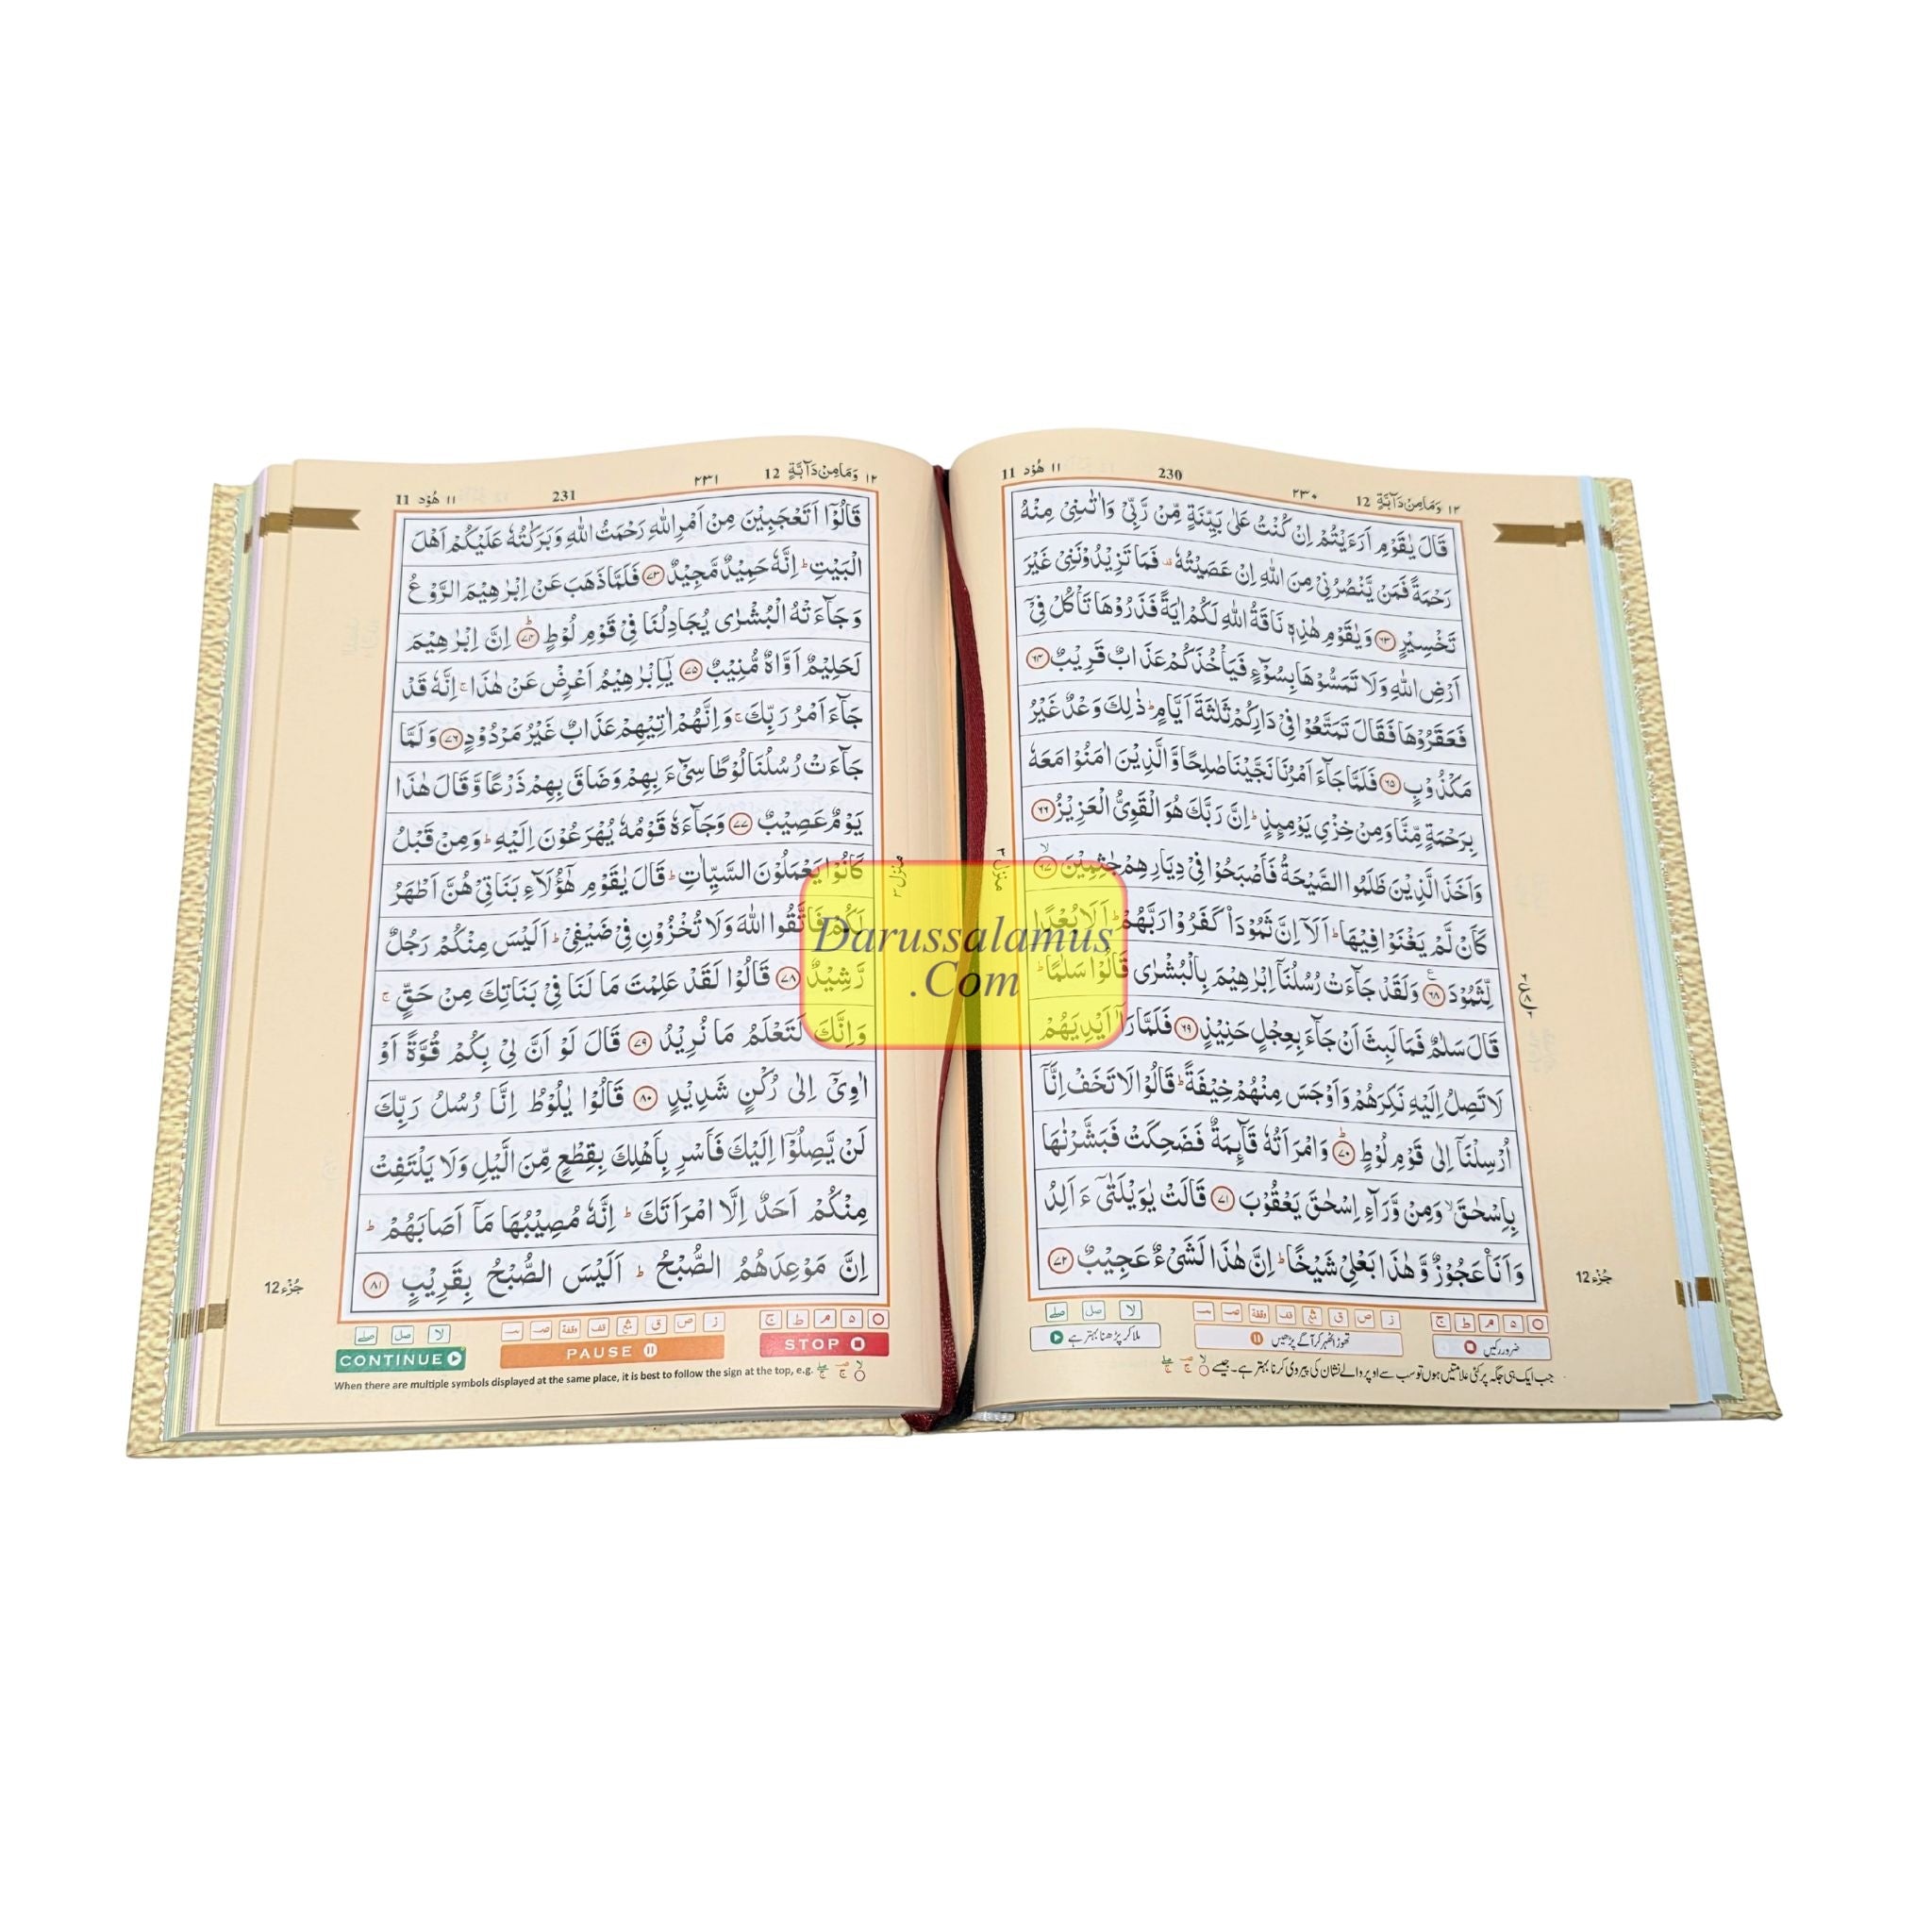 11 هُوْد ١١
230
٢٣٠
12 وَمَا مِنْ دَآبَّةٍ ١٢
قَالَ يٰقَوْمِ اَرَءَيْتُمْ اِنْ كُنْتُ عَلٰى بَيِّنَةٍ مِّنْ رَّبِّيْ وَاٰتٰىنِيْ مِنْهُ
رَحْمَةً فَمَنْ يَّنْصُرُنِيْ مِنَ اللّٰهِ اِنْ عَصَيْتُهٗ ۫ فَمَا تَزِيْدُوْنَنِيْ غَيْرَ
تَخْسِيْرٍ ﴿٦٣﴾ وَيٰقَوْمِ هٰذِهٖ نَاقَةُ اللّٰهِ لَكُمْ اٰيَةً فَذَرُوْهَا تَاْكُلْ فِيْٓ
اَرْضِ اللّٰهِ وَلَا تَمَسُّوْهَا بِسُوْٓءٍ فَيَاْخُذَكُمْ عَذَابٌ قَرِيْبٌ ﴿٦٤﴾
فَعَقَرُوْهَا فَقَالَ تَمَتَّعُوْا فِيْ دَارِكُمْ ثَلٰثَةَ اَيَّامٍ ؕ ذٰلِكَ وَعْدٌ غَيْرُ
مَكْذُوْبٍ ﴿٦٥﴾ فَلَمَّا جَآءَ اَمْرُنَا نَجَّيْنَا صٰلِحًا وَّالَّذِيْنَ اٰمَنُوْا مَعَهٗ
بِرَحْمَةٍ مِّنَّا وَمِنْ خِزْيِ يَوْمِئِذٍ ؕ اِنَّ رَبَّكَ هُوَ الْقَوِيُّ الْعَزِيْزُ ﴿٦٦﴾
وَاَخَذَ الَّذِيْنَ ظَلَمُوا الصَّيْحَةُ فَاَصْبَحُوْا فِيْ دِيَارِهِمْ جٰثِمِيْنَ ﴿٦٧﴾ ۙ
كَاَنْ لَّمْ يَغْنَوْا فِيْهَا ؕ اَلَآ اِنَّ ثَمُوْدَا۟ كَفَرُوْا رَبَّهُمْ ؕ اَلَا بُعْدًا
لِّثَمُوْدَ ﴿٦٨﴾ وَلَقَدْ جَآءَتْ رُسُلُنَآ اِبْرٰهِيْمَ بِالْبُشْرٰى قَالُوْا سَلٰمًا ؕ
قَالَ سَلٰمٌ فَمَا لَبِثَ اَنْ جَآءَ بِعِجْلٍ حَنِيْذٍ ﴿٦٩﴾ فَلَمَّا رَاٰۤ اَيْدِيَهُمْ
لَا تَصِلُ اِلَيْهِ نَكِرَهُمْ وَاَوْجَسَ مِنْهُمْ خِيْفَةً ؕ قَالُوْا لَا تَخَفْ اِنَّآ
اُرْسِلْنَآ اِلٰى قَوْمِ لُوْطٍ ﴿٧٠﴾ ؕ وَامْرَاَتُهٗ قَآئِمَةٌ فَضَحِكَتْ فَبَشَّرْنٰهَا
بِاِسْحٰقَ ۙ وَمِنْ وَّرَآءِ اِسْحٰقَ يَعْقُوْبَ ﴿٧١﴾ قَالَتْ يٰوَيْلَتٰٓى ءَاَلِدُ
وَاَنَا۠ عَجُوْزٌ وَّهٰذَا بَعْلِيْ شَيْخًا ؕ اِنَّ هٰذَا لَشَيْءٌ عَجِيْبٌ ﴿٧٢﴾
منزل ٣
جُزْء 12
ضرور رکیں
تھوڑا ٹھہر کر آگے پڑھیں
ملا کر پڑھنا بہتر ہے
جب ایک ہی جگہ پر کئی علامتیں ہوں تو سب سے اوپر والے نشان کی پیروی کرنا بہتر ہے۔ جیسے
11 هُوْد ١١
231
٢٣١
12 وَمَا مِنْ دَآبَّةٍ ١٢
قَالُوْٓا اَتَعْجَبِيْنَ مِنْ اَمْرِ اللّٰهِ رَحْمَتُ اللّٰهِ وَبَرَكٰتُهٗ عَلَيْكُمْ اَهْلَ
الْبَيْتِ ؕ اِنَّهٗ حَمِيْدٌ مَّجِيْدٌ ﴿٧٣﴾ فَلَمَّا ذَهَبَ عَنْ اِبْرٰهِيْمَ الرَّوْعُ
وَجَآءَتْهُ الْبُشْرٰى يُجَادِلُنَا فِيْ قَوْمِ لُوْطٍ ﴿٧٤﴾ ؕ اِنَّ اِبْرٰهِيْمَ
لَحَلِيْمٌ اَوَّاهٌ مُّنِيْبٌ ﴿٧٥﴾ يٰٓاِبْرٰهِيْمُ اَعْرِضْ عَنْ هٰذَا ۚ اِنَّهٗ قَدْ
جَآءَ اَمْرُ رَبِّكَ ۚ وَاِنَّهُمْ اٰتِيْهِمْ عَذَابٌ غَيْرُ مَرْدُوْدٍ ﴿٧٦﴾ وَلَمَّا
جَآءَتْ رُسُلُنَا لُوْطًا سِيْٓءَ بِهِمْ وَضَاقَ بِهِمْ ذَرْعًا وَّقَالَ هٰذَا
يَوْمٌ عَصِيْبٌ ﴿٧٧﴾ وَجَآءَهٗ قَوْمُهٗ يُهْرَعُوْنَ اِلَيْهِ ؕ وَمِنْ قَبْلُ
كَانُوْا يَعْمَلُوْنَ السَّيِّاٰتِ ؕ قَالَ يٰقَوْمِ هٰٓؤُلَآءِ بَنَاتِيْ هُنَّ اَطْهَرُ
لَكُمْ فَاتَّقُوا اللّٰهَ وَلَا تُخْزُوْنِ فِيْ ضَيْفِيْ ؕ اَلَيْسَ مِنْكُمْ رَجُلٌ
رَّشِيْدٌ ﴿٧٨﴾ قَالُوْا لَقَدْ عَلِمْتَ مَا لَنَا فِيْ بَنَاتِكَ مِنْ حَقٍّ ۚ
وَاِنَّكَ لَتَعْلَمُ مَا نُرِيْدُ ﴿٧٩﴾ قَالَ لَوْ اَنَّ لِيْ بِكُمْ قُوَّةً اَوْ
اٰوِيْٓ اِلٰى رُكْنٍ شَدِيْدٍ ﴿٨٠﴾ قَالُوْا يٰلُوْطُ اِنَّا رُسُلُ رَبِّكَ
لَنْ يَّصِلُوْٓا اِلَيْكَ فَاَسْرِ بِاَهْلِكَ بِقِطْعٍ مِّنَ الَّيْلِ وَلَا يَلْتَفِتْ
مِنْكُمْ اَحَدٌ اِلَّا امْرَاَتَكَ ؕ اِنَّهٗ مُصِيْبُهَا مَآ اَصَابَهُمْ ؕ
اِنَّ مَوْعِدَهُمُ الصُّبْحُ ؕ اَلَيْسَ الصُّبْحُ بِقَرِيْبٍ ﴿٨١﴾
منزل ٣
جُزْء 12
CONTINUE
PAUSE
STOP
When there are multiple symbols displayed at the same place, it is best to follow the sign at the top, e.g.
Darussalamus
.Com